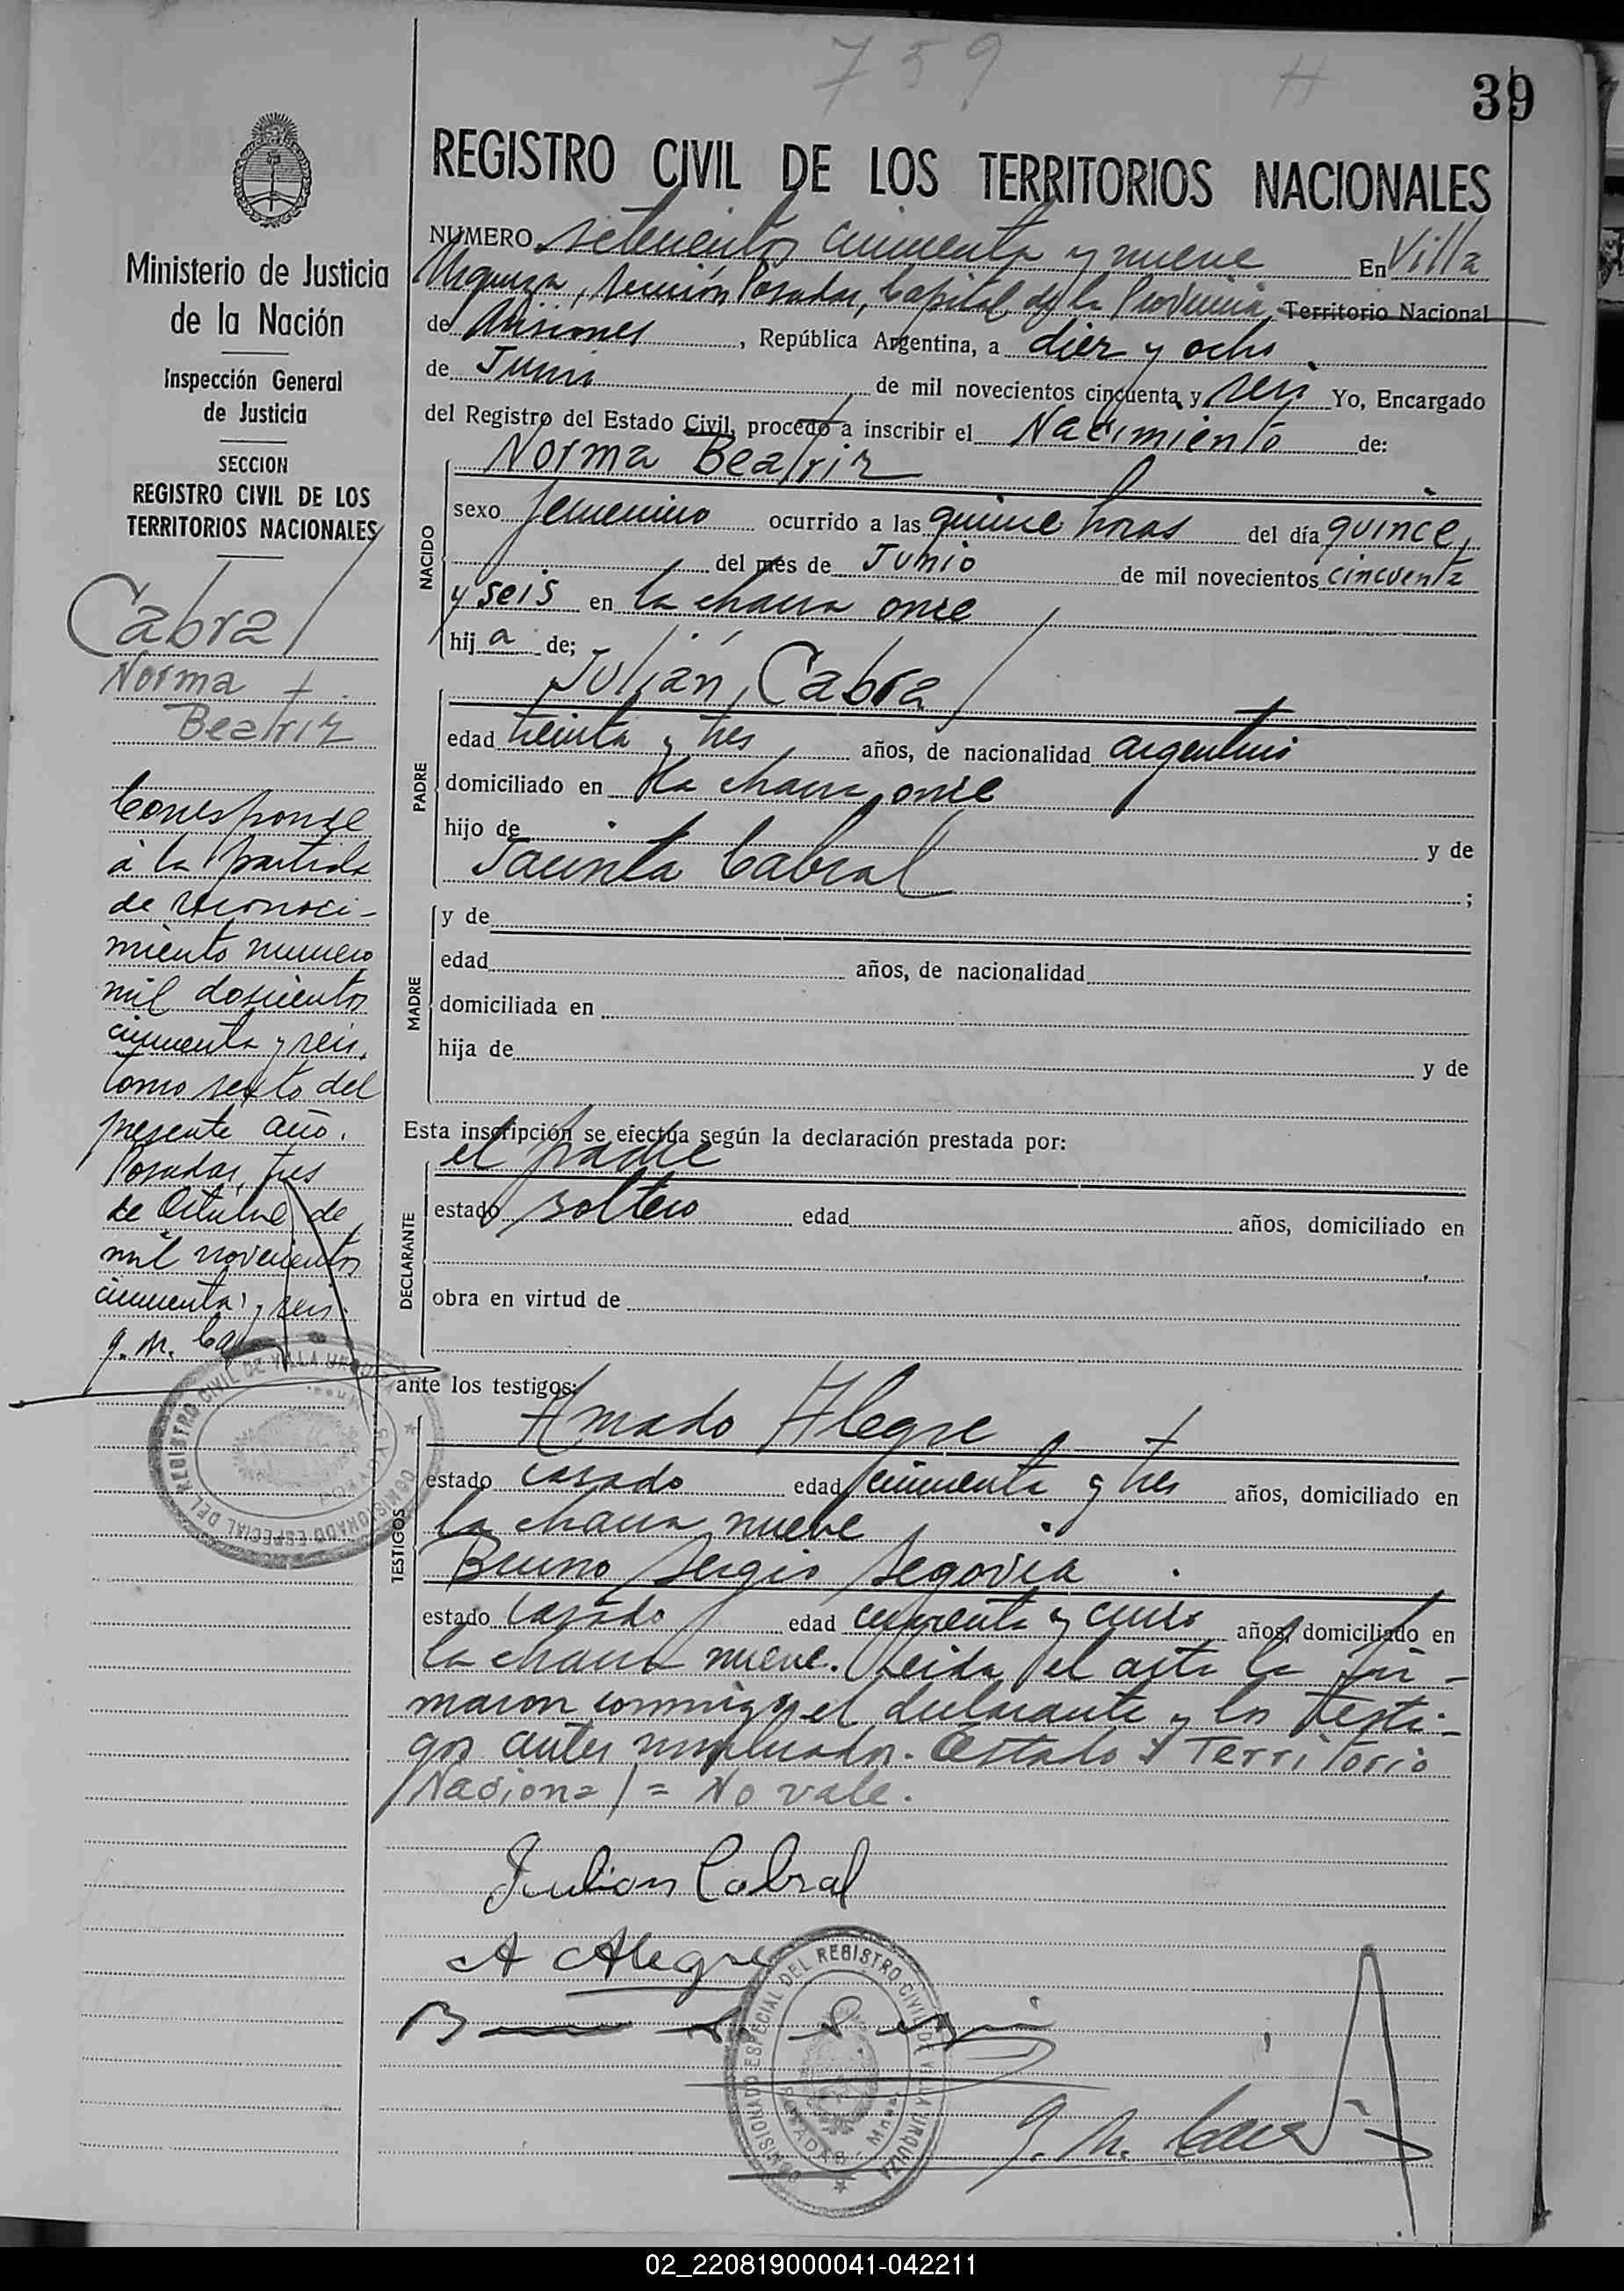 759
39
REGISTRO CIVIL DE LOS TERRITORIOS NACIONALES
Ministerio de Justicia
de la Nación
Inspección General
de Justicia
SECCION
REGISTRO CIVIL DE LOS
TERRITORIOS NACIONALES
Cabral
Norma
Beatriz
Corresponde
a la partida
de reconoci-
miento numero
mil doscientos
cincuenta y seis,
tomo sexto del
presente año.
Posadas, tres
de Octubre de
mil novecientos
cincuenta y seis.
NUMERO setecientos cincuenta y nueve En Villa
Urquiza, sección Posadas, Capital de la Provincia, Territorio Nacional
de Misiones, República Argentina, a diez y ocho
de Junio de mil novecientos cincuenta y seis Yo, Encargado
del Registro del Estado Civil, procedo a inscribir el Nacimiento de:
NACIDO
Norma Beatriz
sexo femenino ocurrido a las quince horas del día quince,
del mes de Junio de mil novecientos cincuenta
y seis en la chacra once
hij a de;
PADRE
Julián Cabral
edad treinta y tres años, de nacionalidad argentino
domiciliado en la chacra once
hijo de y de
Jacinta Cabral ;
MADRE
y de
edad años, de nacionalidad
domiciliada en
hija de y de
Esta inscripción se efectúa según la declaración prestada por:
DECLARANTE
el padre
estado soltero edad años, domiciliado en
obra en virtud de
ante los testigos:
TESTIGOS
Amado Alegre
estado casado edad cincuenta y tres años, domiciliado en
la chacra nueve
Bruno Sergio Segovia
estado casado edad y cinco años, domiciliado en
la chacra nueve. Leida el acta la fir-
maron conmigo el declarante y los testi-
gos antes nombrados. Testado: Territorio
Nacional = No vale.
Julian Cabral
A Alegre
COMISIONADO ESPECIAL DEL REGISTRO CIVIL DE VILLA URQUIZA
POSADAS
02_220819000041-042211